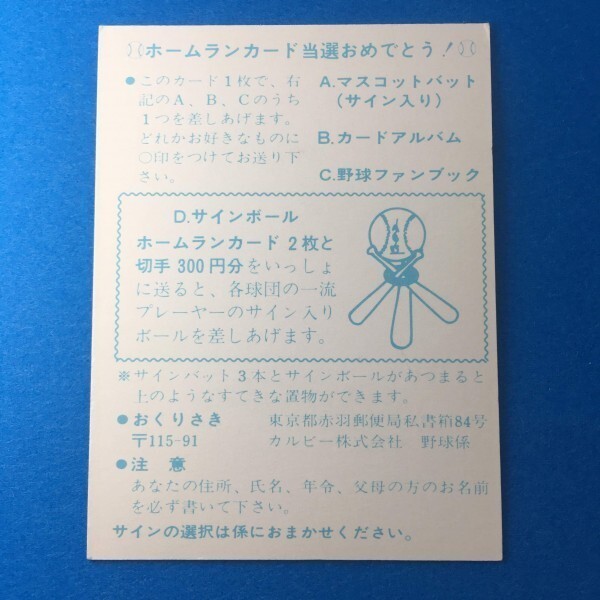 ホームランカード当選おめでとう!
●このカード1枚で、右
記のA、B、Cのうち
1つを差しあげます。
どれかお好きなものに
○印をつけてお送り下
さい。
A.マスコットバット
(サイン入り)
B.カードアルバム
C.野球ファンブック
D.サインボール
ホームランカード2枚と
切手300円分をいっしょ
に送ると、各球団の一流
プレーヤーのサイン入り
ボールを差しあげます。
※サインバット3本とサインボールがあつまると
上のようなすてきな置物ができます。
●おくりさき 東京都赤羽郵便局私書箱84号
〒115-91 カルビー株式会社 野球係
●注意
あなたの住所、氏名、年令、父母の方のお名前
を必ず書いて下さい。
サインの選択は係におまかせください。